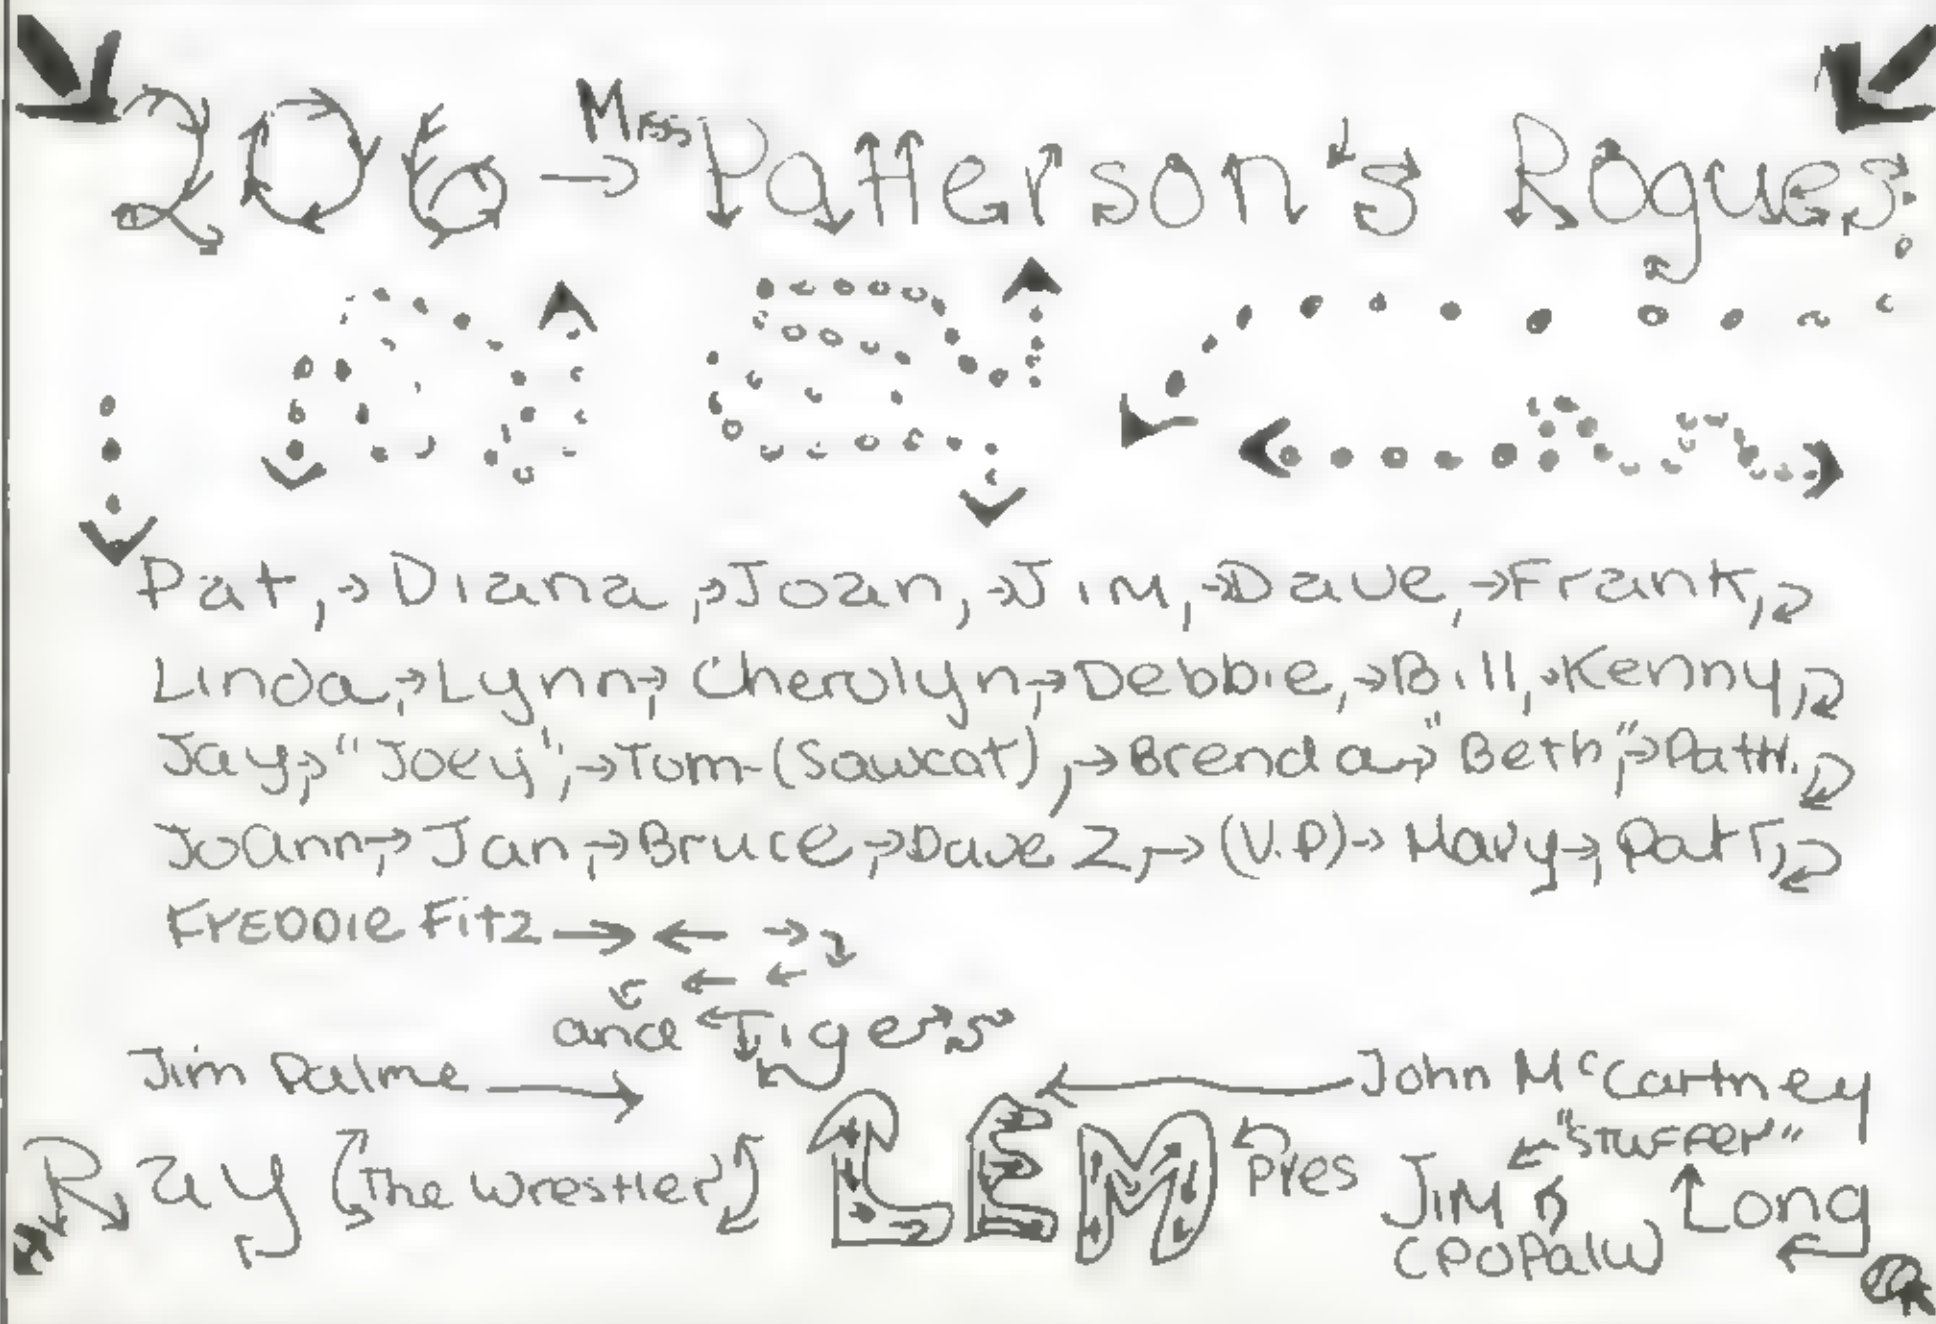 206 → Miss Patterson's Rogues
Pat, → Diana, → Joan, → Jim, → Dave, → Frank,
Linda, → Lynn, → Cherolyn, → Debbie, → Bill, → Kenny,
Jay, → "Joey", → Tom - (Sawcat), → Brenda, → "Beth", → Patti,
JoAnn, → Jan, → Bruce, → Dave Z, → (V.P) → Mary →, Pat T,
FREDDIE Fitz → ← →
and Tigers
Jim Palme → ← John McCartney
Ray (The Wrestler) LEM Pres "STUFFER"
JIM Long
(POPalw)